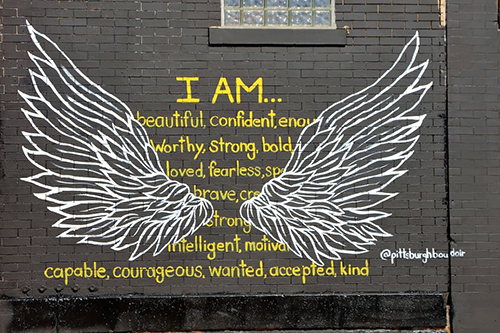 I AM...
beautiful, confident,
worthy, strong, bold
loved, fearless,
brave,
strong
intelligent,
capable, courageous, wanted, accepted, kind
@pittsburghboudoir